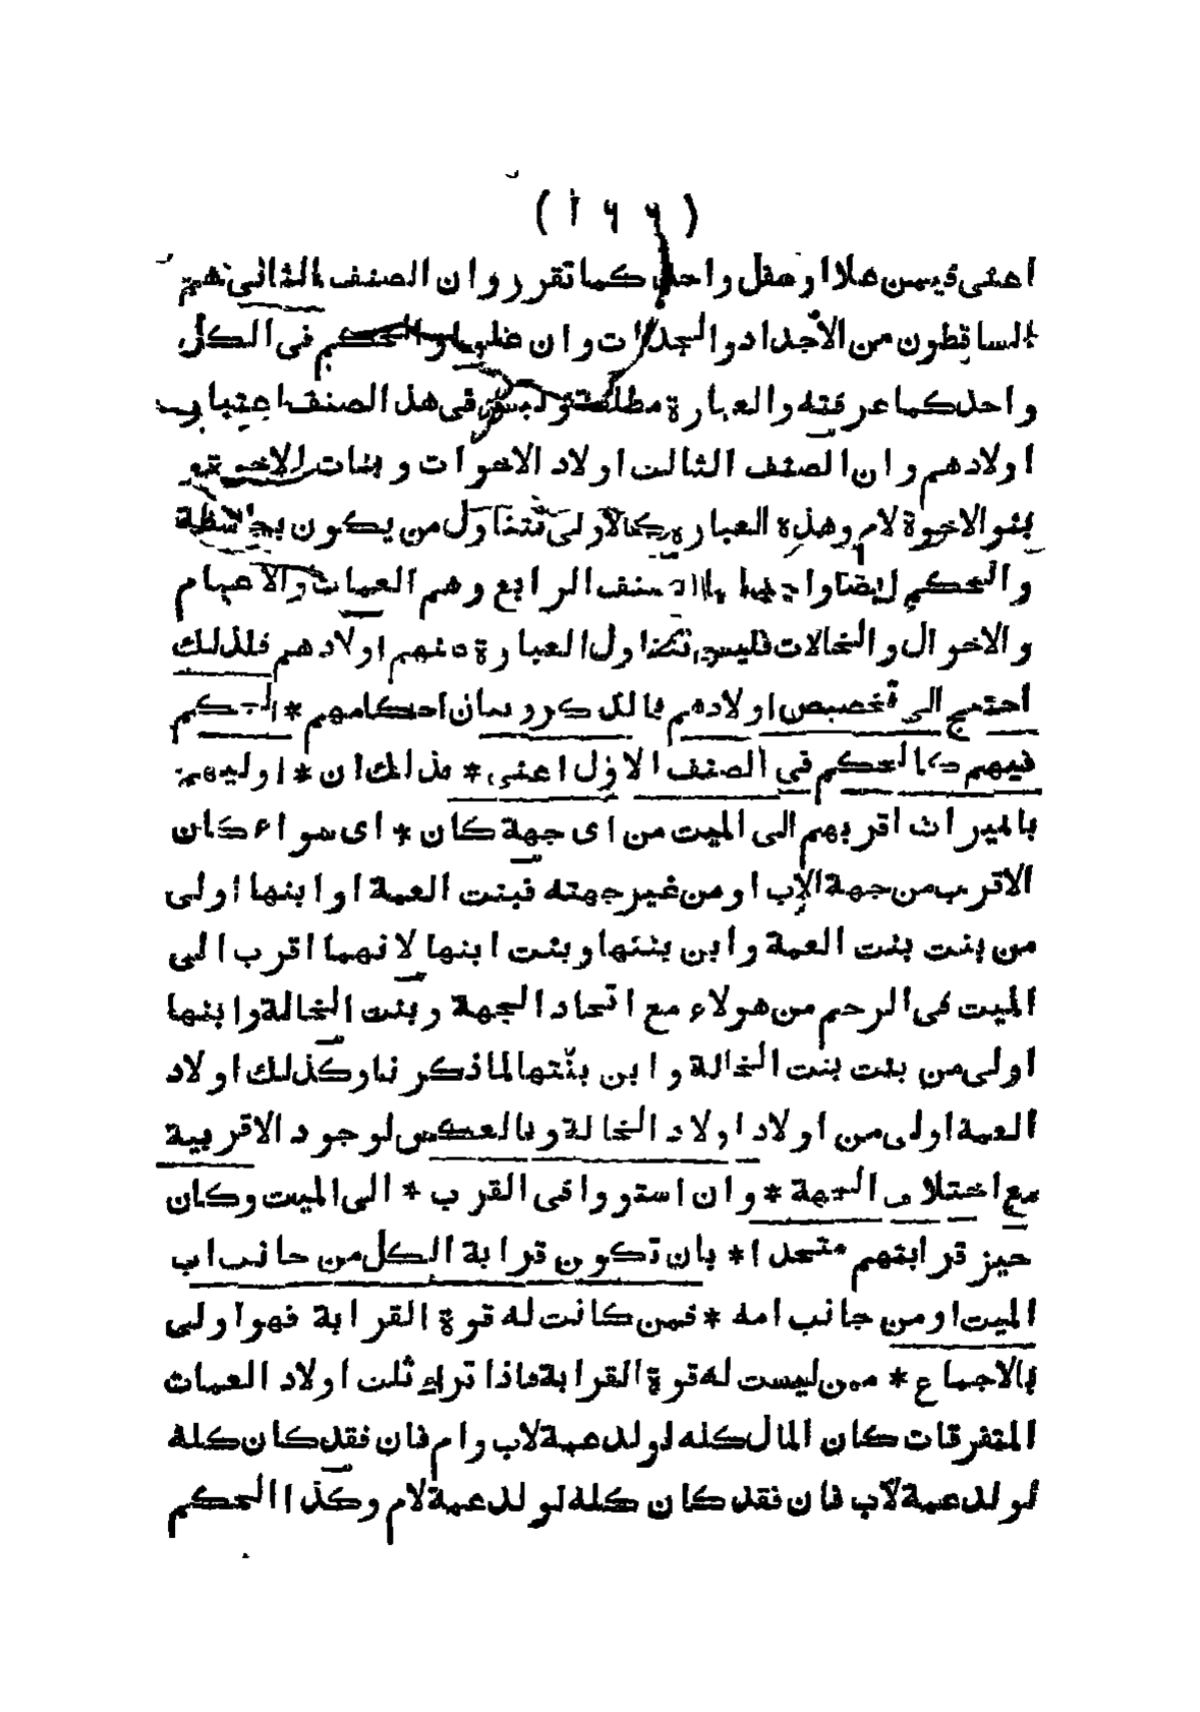 ( ١٦٦ )
اعنى فيمن علا او سفل واحد كما تقرر وان الصنف الثانى هم
الساقطون من الاجداد والجدات وان علوا والحكم فى الكل
واحد كما عرفته والعبارة مطلقة وليس فى هذا الصنف اعتبار
اولادهم وان الصنف الثالث اولاد الاخوات وبنات الاخوة و
بنو الاخوة لام وهذه العبارة كالاولى تتناول من يكون بواسطة
والحكم ايضا واحد الصنف الرابع وهم العمات والاعمام
والاخوال والخالات فليس تتناول العبارة منهم اولادهم فلذلك
احتيج الى تخصيص اولادهم بالذكر وبيان احكامهم * الحكم
فيهم كالحكم فى الصنف الاول اعنى * بذلك ان * اوليهم
بالميراث اقربهم الى الميت من اى جهة كان * اى سواء كان
الاقرب من جهة الاب او من غير جهته فبنت العمة او ابنها اولى
من بنت بنت العمة وابن بنتها وبنت ابنها لانهما اقرب الى
الميت فى الرحم من هولاء مع اتحاد الجهة وبنت الخالة وابنها
اولى من بنت بنت الخالة وابن بنتها لما ذكرنا وكذلك اولاد
العمة اولى من اولاد اولاد الخالة وبالعكس لوجود الاقربية
مع اختلاف الجهة * وان استووا فى القرب * الى الميت وكان
حيز قرابتهم متحدا * بان تكون قرابة الكل من جانب اب
الميت او من جانب امه * فمن كانت له قوة القرابة فهو اولى
بالاجماع * ممن ليست له قوة القرابة فاذا ترك ثلث اولاد العمات
المتفرقات كان المال كله لولد عمة لاب وام فان فقد كان كله
لولد عمة لاب فان فقد كان كله لولد عمة لام وكذا الحكم